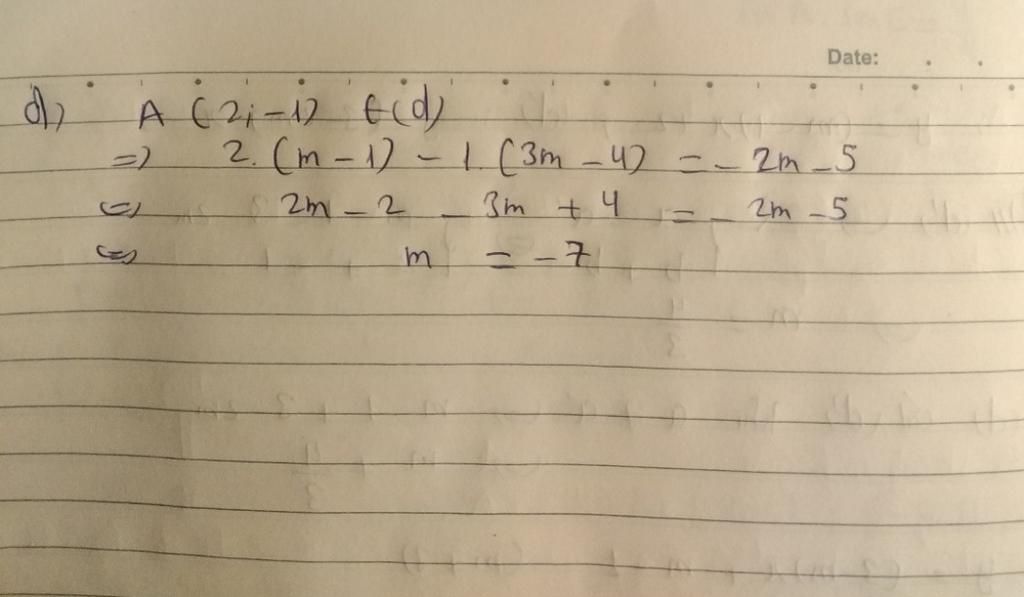 Date:
d) A (2; -1) ∈ (d)
=> 2. (m - 1) - 1. (3m - 4) = - 2m - 5
<=> 2m - 2 - 3m + 4 = - 2m - 5
<=> m = - 7